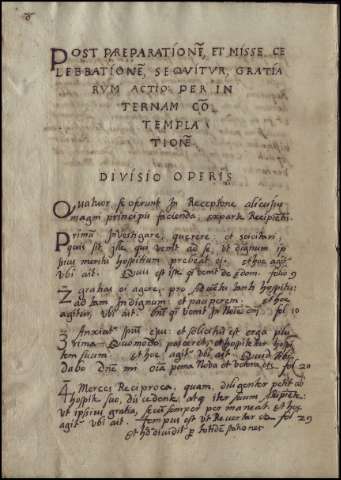 POST PRÆPARATIONẼ, ET MISSE CE
LEBRATIONẼ, SEQVITVR, GRATIA
RVM ACTIO PER IN
TERNAM CÕ
TEMPLA
TIONẼ
DIVISIO OPERIS
Quatuor se oferunt In Receptione alicuius
magni principis facienda, ex parte Recipiẽtis.
Primũ Investigare, querere, et sciscitari,
quis sit ille, qui venit ad se, ut dignum ip
sius meritis hospitium prebeat ei. et hoc agit'
ubi ait. Quis est iste qi venit de Edom. folio 9
2 gratias ei agere, pro tanti hospitis
ad tam Indignum et pauperem. et hoc
agitur, ubi ait. qi venit In fol 10
3 Anxiat' et solicitus est erga plu
rima. Quomodo pascere, et hospitetur hospi
tem suum. et hoc agit' ubi ait. Quid
dabo dñe mi nova et vetera fol 20
4 Merces Reciproca, quam, diligenter petit ab
hospite suo, discedente, atq iter suum
ut ipsius gratia, secũ semper permaneat. et hoc
agit' ubi ait. tempus est ut Revertar fol 29
et dividit' totidẽ